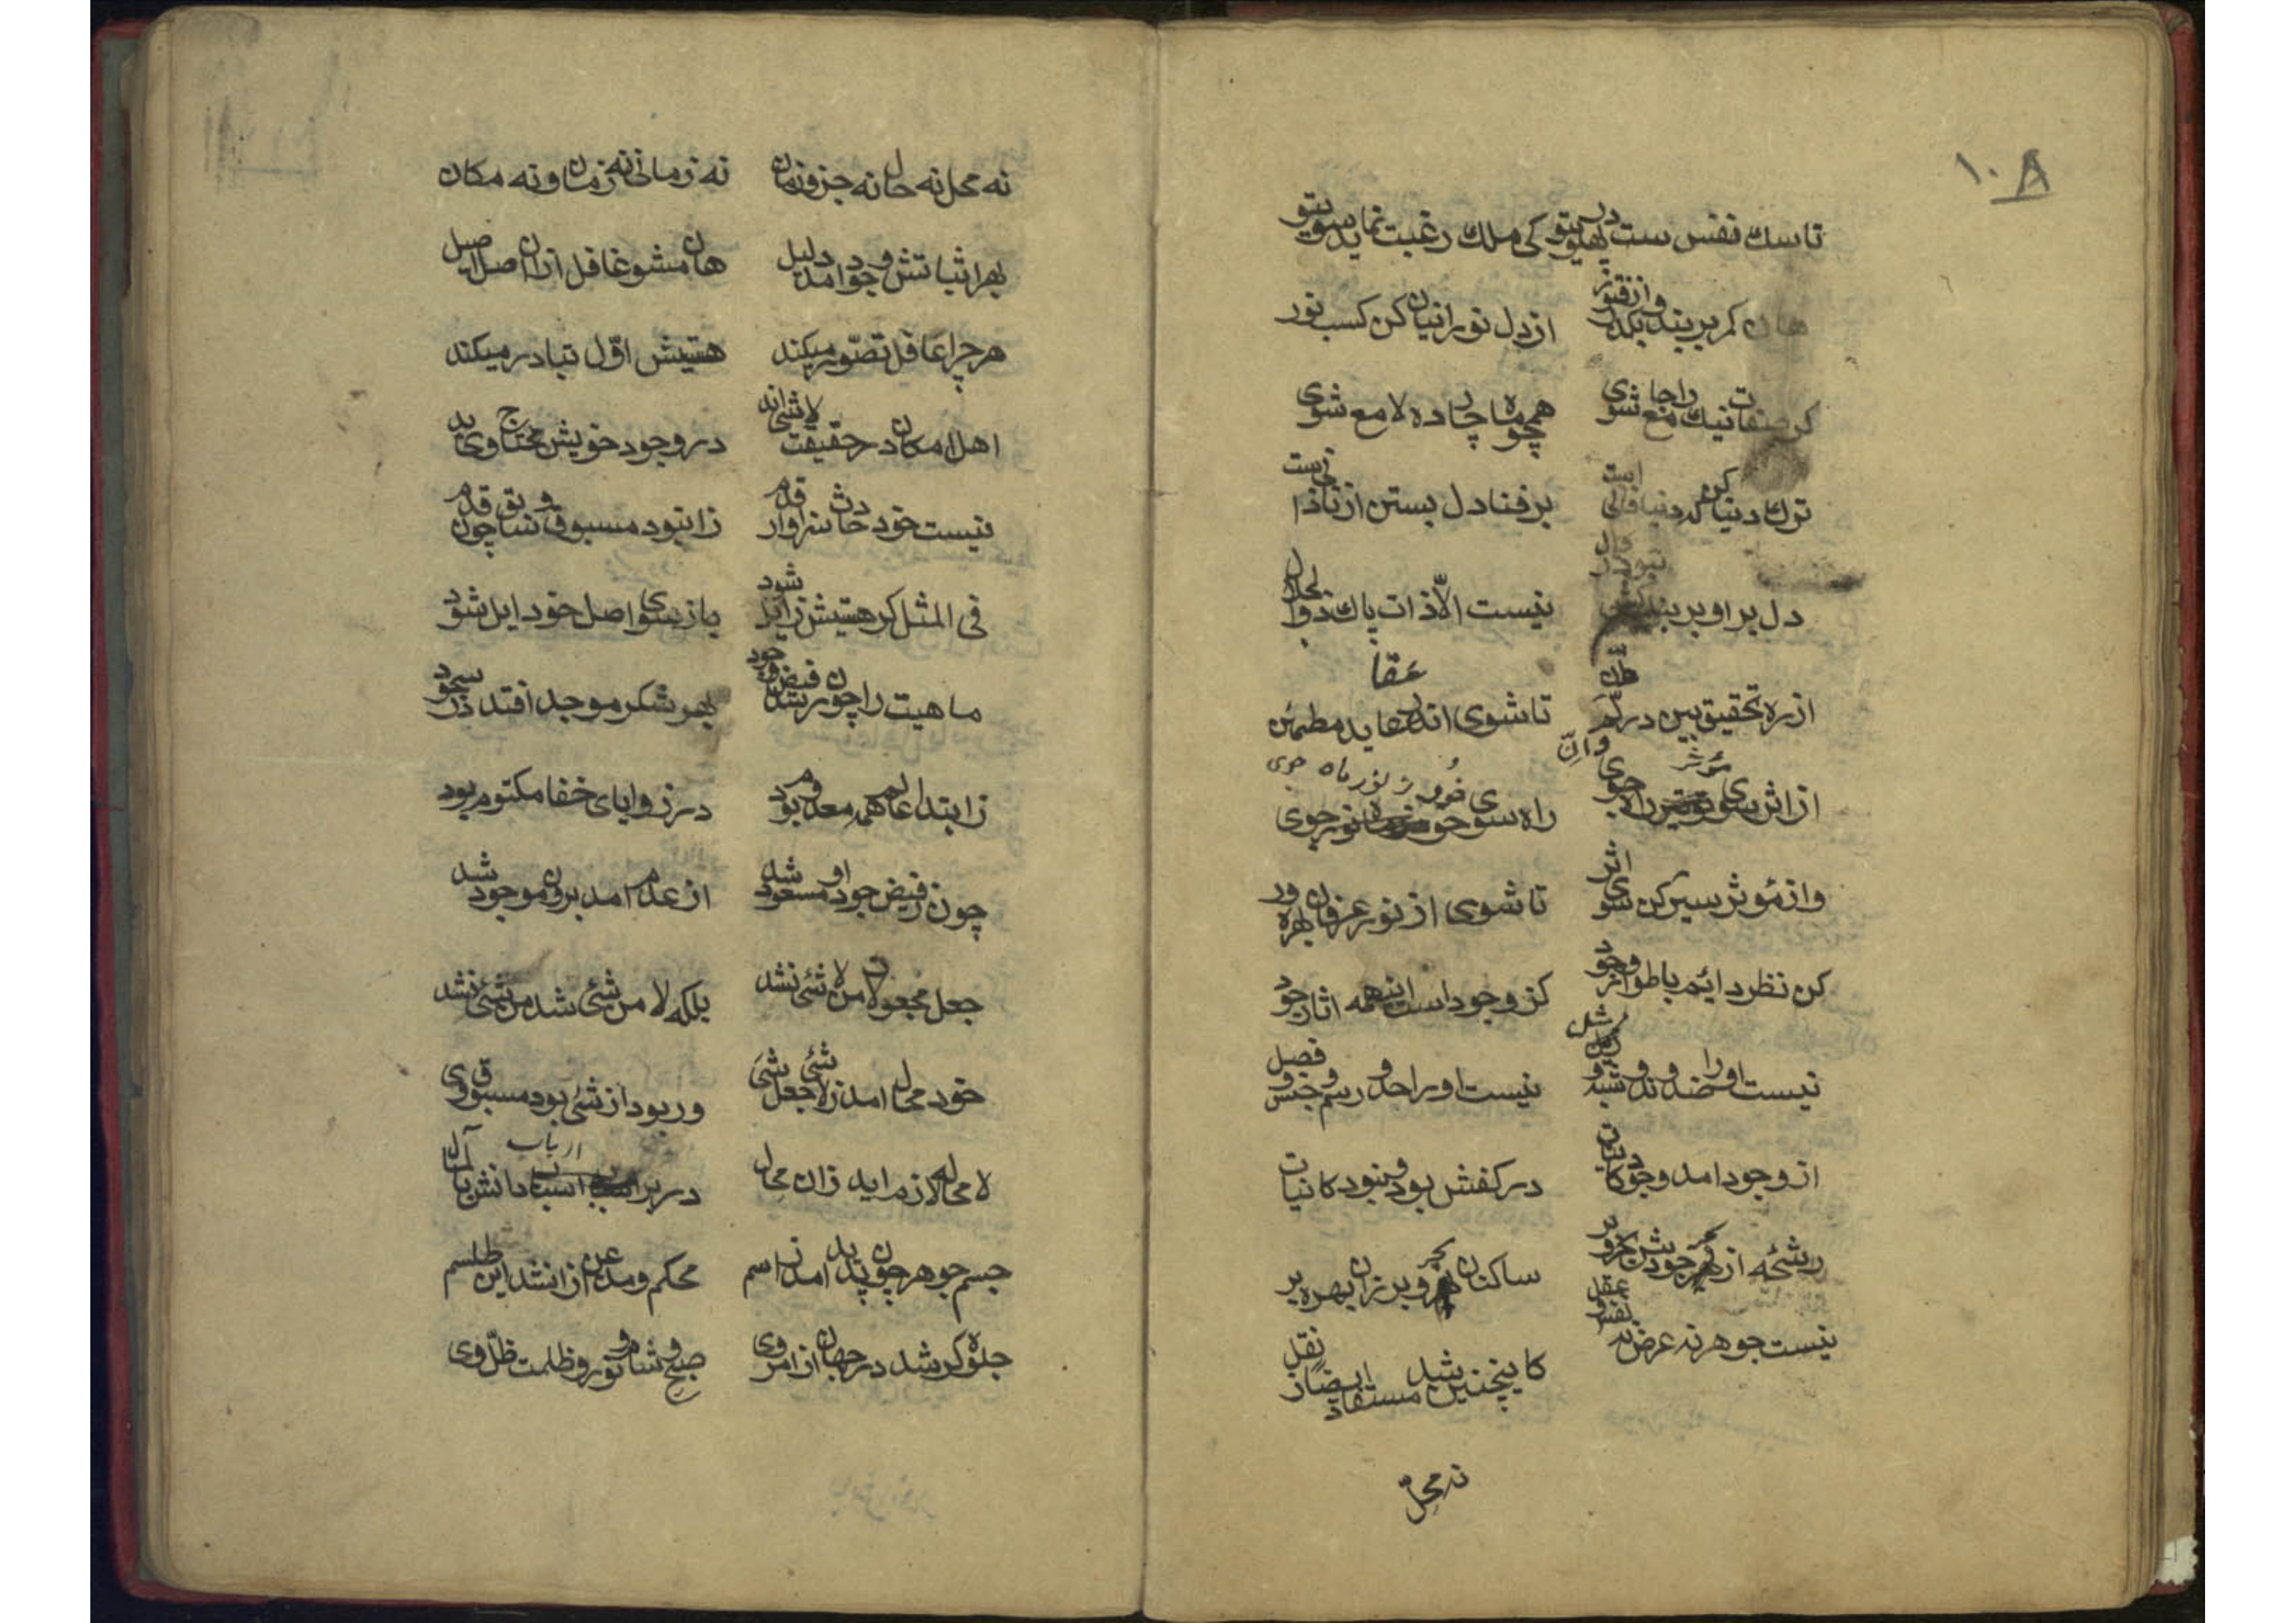 ۱۰۸
تا سک نفس ست در پهلوی تو کی ملک رغبت نماید سوی تو
هان کمر بر بند و بکذر از فتور از دل نورانیان کن کسب نور
کر صفات نیک را جامع شوی همچو ماه چارده لامع شوی
ترک دنیا کن که دنیا فانی است بر فنا دل بستن از نادانی است
دل بر او بر بند نیست الّا ذات پاک ذو الجلال
عقا
از ره تحقیق بین در لمّ وانّ تا شوی اندر عقاید مطمئن
از اثر سوی مؤثر راه جوی راه سوی خور ز نور ماه جوی
واز مؤثر سیر کن سوی اثر تا شوی از نور عرفان بهره ور
کن نظر دایم باطوار وجود کز وجود است اینهمه اثار جود
نیست او را ضد و ند و شبه و مثل نیست او را حد و رسم و جنس و فصل
از وجود امد وجود کاینات در کفش بود و نبود کانیات
رشحه از بحر جودش بحر و بر ساکنان بحر و بر زان بهره بر
نیست جوهر نه عرض نه نفس و عقل کاینچنین شد مستفاد ایضا ز نقل
نه محلّ
نه محل نه حال نه جز و نه ان نه زمانی نه زمان و نه مکان
بهر اثباتش وجود امد دلیل هان مشو غافل ازان اصل اصیل
هر چرا عاقل تصوّر میکند هستیش اوّل تبادر میکند
اهل امکان در حقیقت لاشی اند در وجود خویش محتاج وی اند
نیست خود حادث سزاوار قدم زانبود مسبوق و سابق چون قدم
فی المثل کر هستیش زایل شود باز سوی اصل خود ایل شود
ماهیت را چون رسد فیض وجود بهر شکر موجد افتد در سجود
ز ابتدا عالم همه معدوم بود در زوایای خفا مکتوم بود
چون ز فیض جود او مسعود شد از عدم امد برون موجود شد
جعل مجعولات من لا شئ نشد بلکه لا من شئ شد من شئ نشد
خود محال امد ز لا شئ جعل شئ ور بود از شئ بود مسبوق وی
لا محاله لازم اید زان محال در بر ارباب دانش بامآل
جسم جوهر چون پدید امد ز اسم محکم و مذعن ازانشد این طلسم
جلوه کر شد در جهان از امر وی صبح و شام و نور و ظلمت ظلّ وی